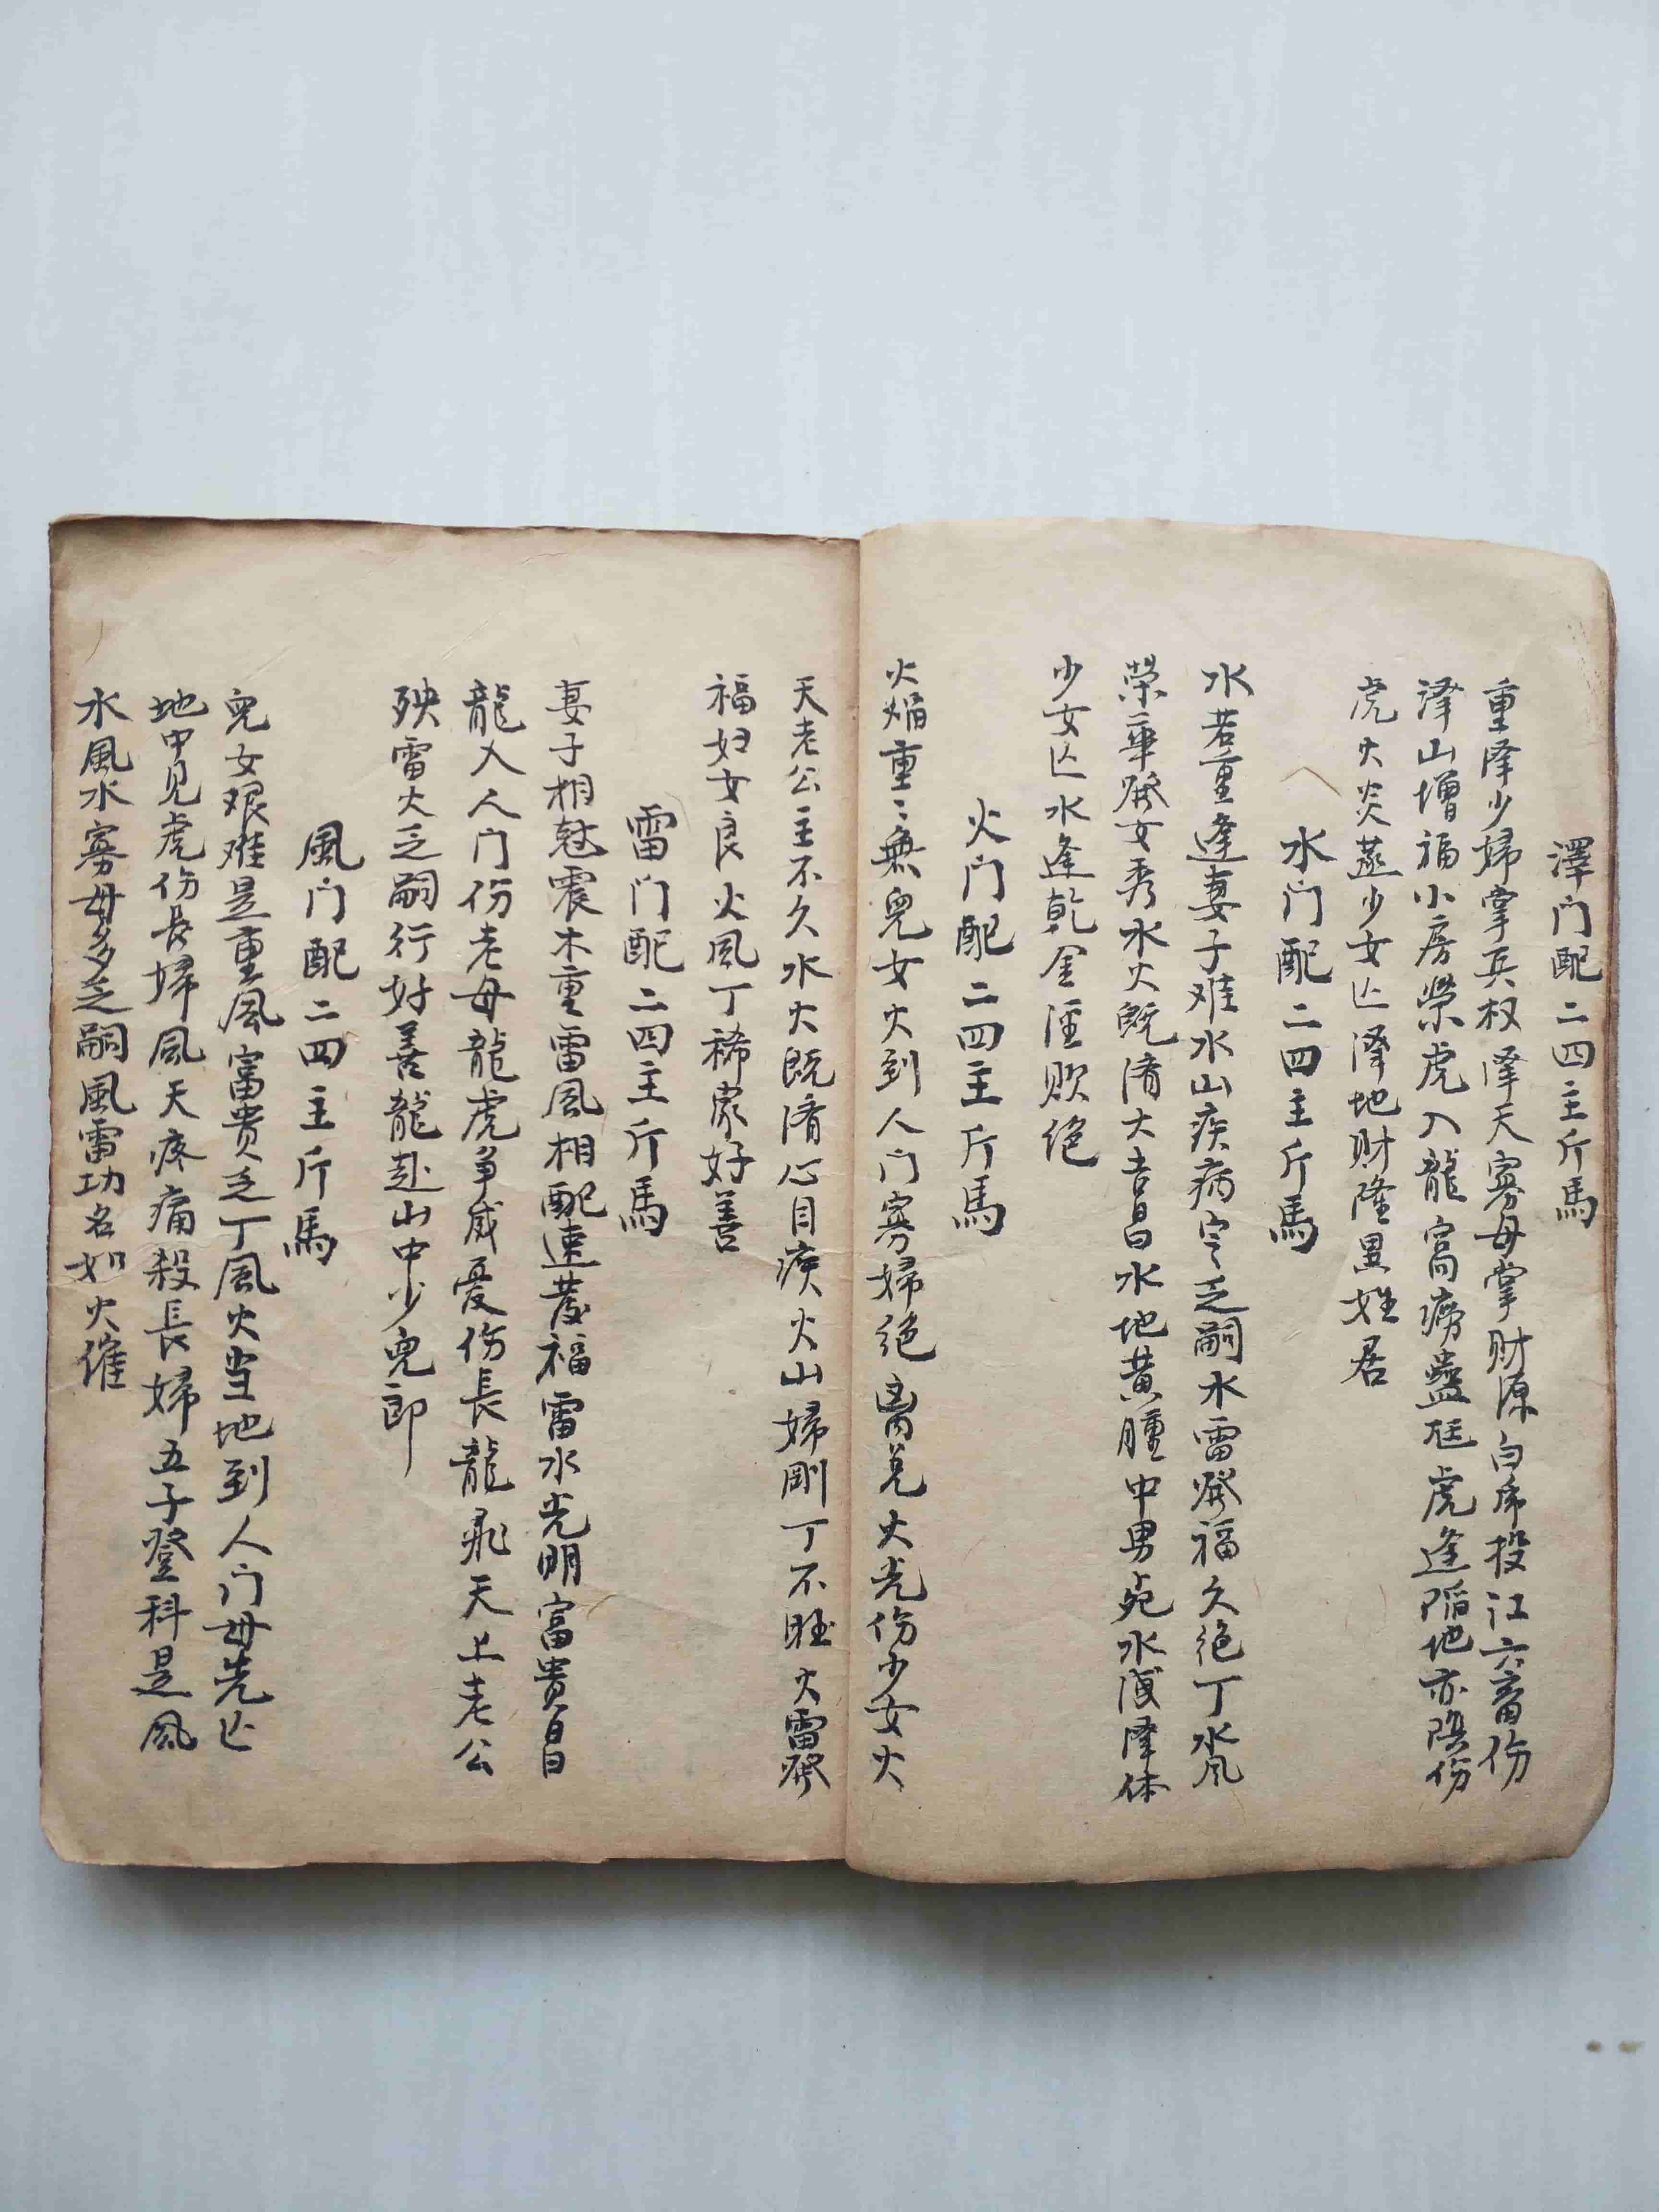 澤门配二四主斤馬
重泽少婦掌兵权泽天寡母掌财源白虎投江六畜伤
泽山增福小房荣虎入龍窩痨蠱尫虎逢陷地亦陨伤
虎火炎蒸少女亡泽地财隆異姓居
水门配二四主斤馬
水若重逢妻子难水山疾病定乏嗣水雷發福久绝丁水风
荣華發女秀水火既济大吉昌水地黄腫中男死水渡泽体
少女亡水逢乾金淫败绝
火门配二四主斤馬
火焰重々無兒女火到人门寡婦绝离兑火光伤少女火
天老公主不久水火既济心目疾火山婦剛丁不旺火雷發
福妇女良火风丁稀家好善
雷门配二四主斤馬
妻子相尅震木重雷风相配速發福雷水光明富貴昌
龍入人门伤老母龍虎争威爱伤長龍龍飛天上老公
殃雷火乏嗣行好善龍赴山中少兒郎
風门配二四主斤馬
兒女艰难是重風富贵乏丁風火当地到人门母先亡
地中见虎伤長婦风天疼痛殺長婦五子登科是风
水風水寡母多乏嗣風雷功名如火催